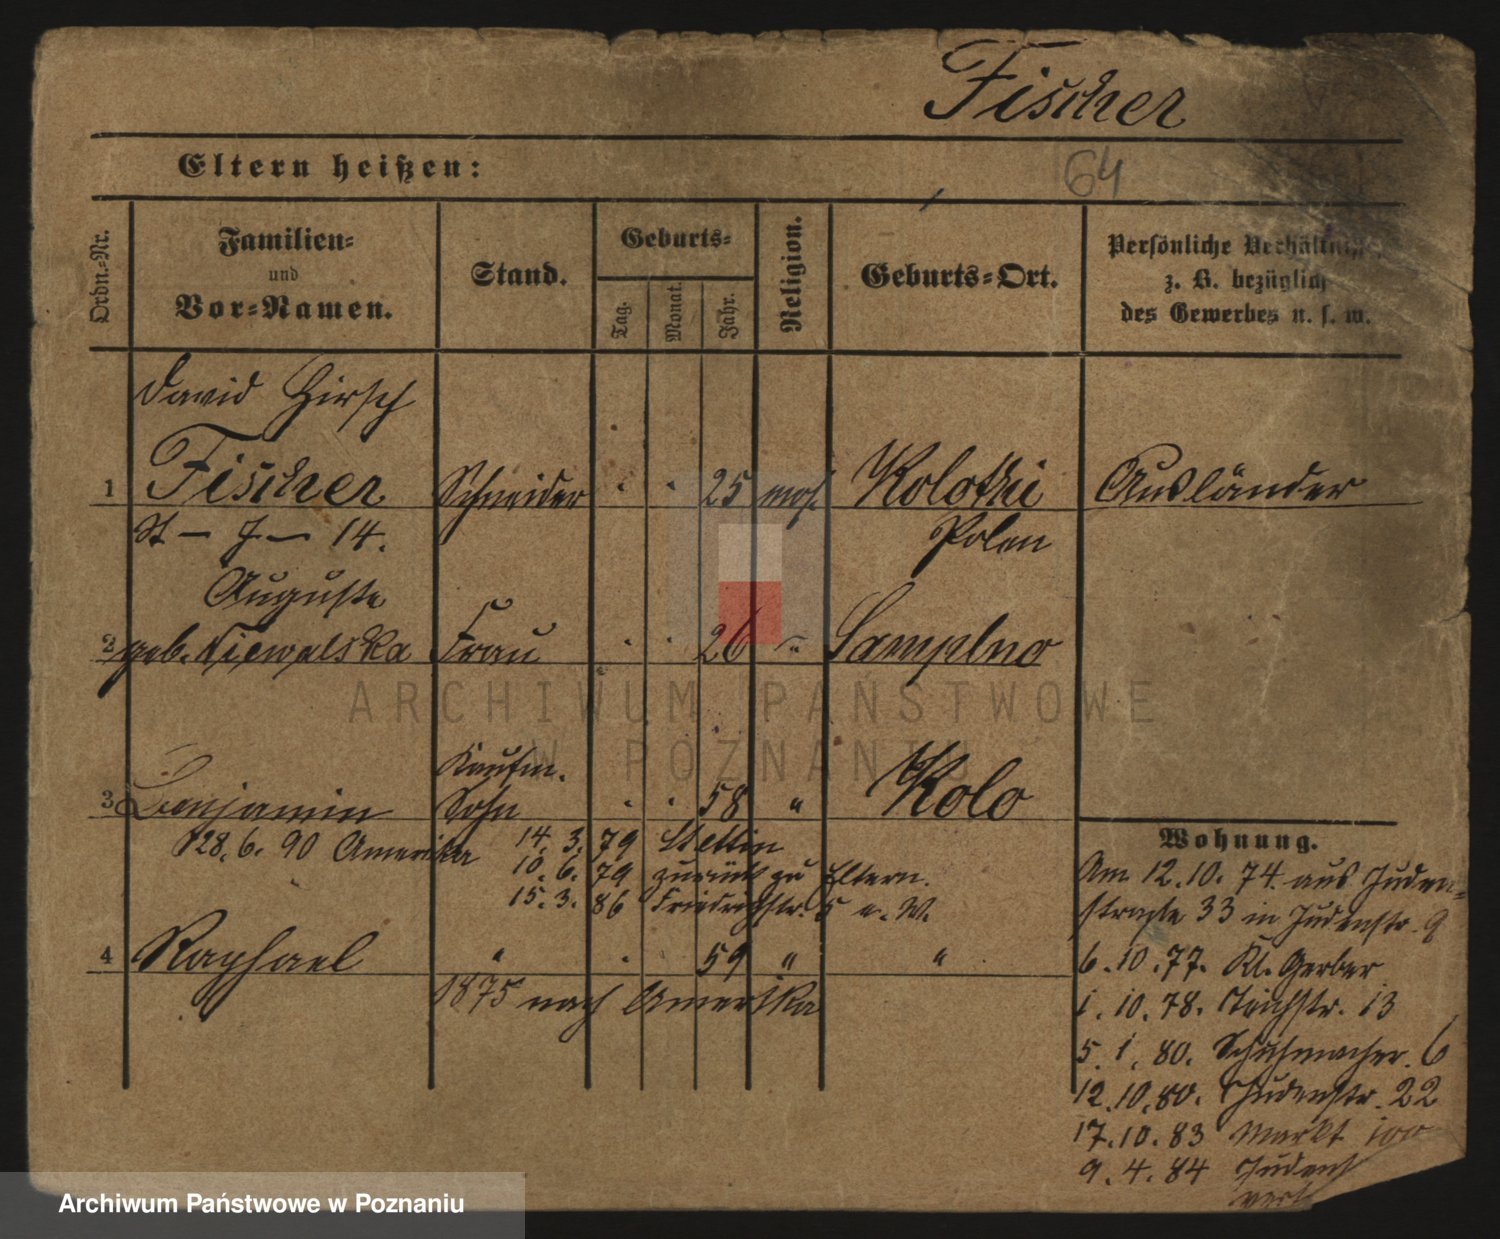 Fischer
Eltern heißen:
64
Ordn.-Nr.
Familien-
und
Vor-Namen.
Stand.
Geburts-
Tag.
Monat.
Jahr.
Religion.
Geburts-Ort.
Persönliche Verhältnisse,
z. B. bezüglich
des Gewerbes u. s. w.
David Hirsch
1 Fischer Schneider . . 25 mos. Kolotkie Ausländer
St — J — 14. Polen
Auguste
2 geb. Niewalska Frau . . 26 " Samplno
Kaufm.
3 Benjamin Sohn . . 58 " Kolo
28. 6. 90 Amerika 14. 3. 79 Stettin
10. 6. 79 zurück zu Eltern.
15. 3. 86 Friedrichstr. 5 a. W.
4 Raphael " . 59 " "
1875 nach Amerika
Wohnung.
Am 12. 10. 74 aus Juden-
straße 33 in Judenstr. 9
6. 10. 77. Kl. Gerber
1. 10. 78. Teichstr. 13
5. 1. 80. Schuhmacher. 6
12. 10. 80. Judenstr. 22
17. 10. 83 Markt 100
9. 4. 84 Judenst
ARCHIWUM PAŃSTWOWE
W POZNANIU
Archiwum Państwowe w Poznaniu